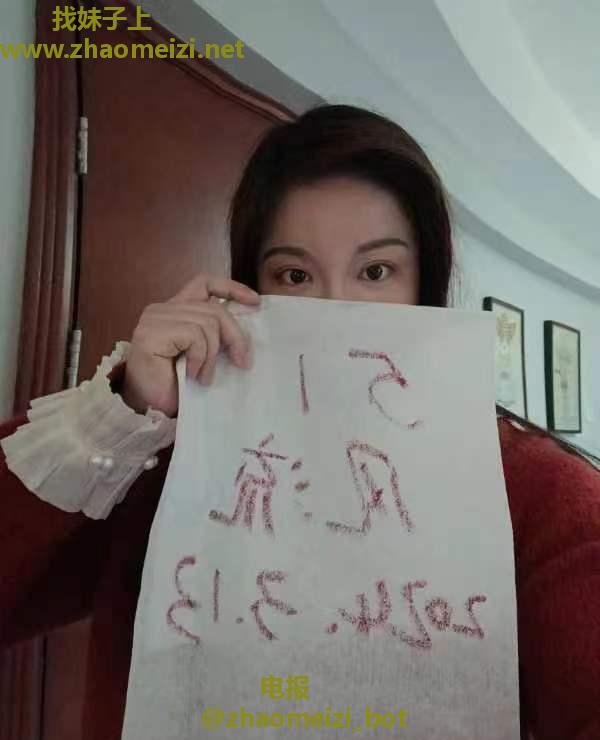 找妹子上
www.zhaomeizi.net
51
风流
2024.3.13
电报
@zhaomeizi_bot